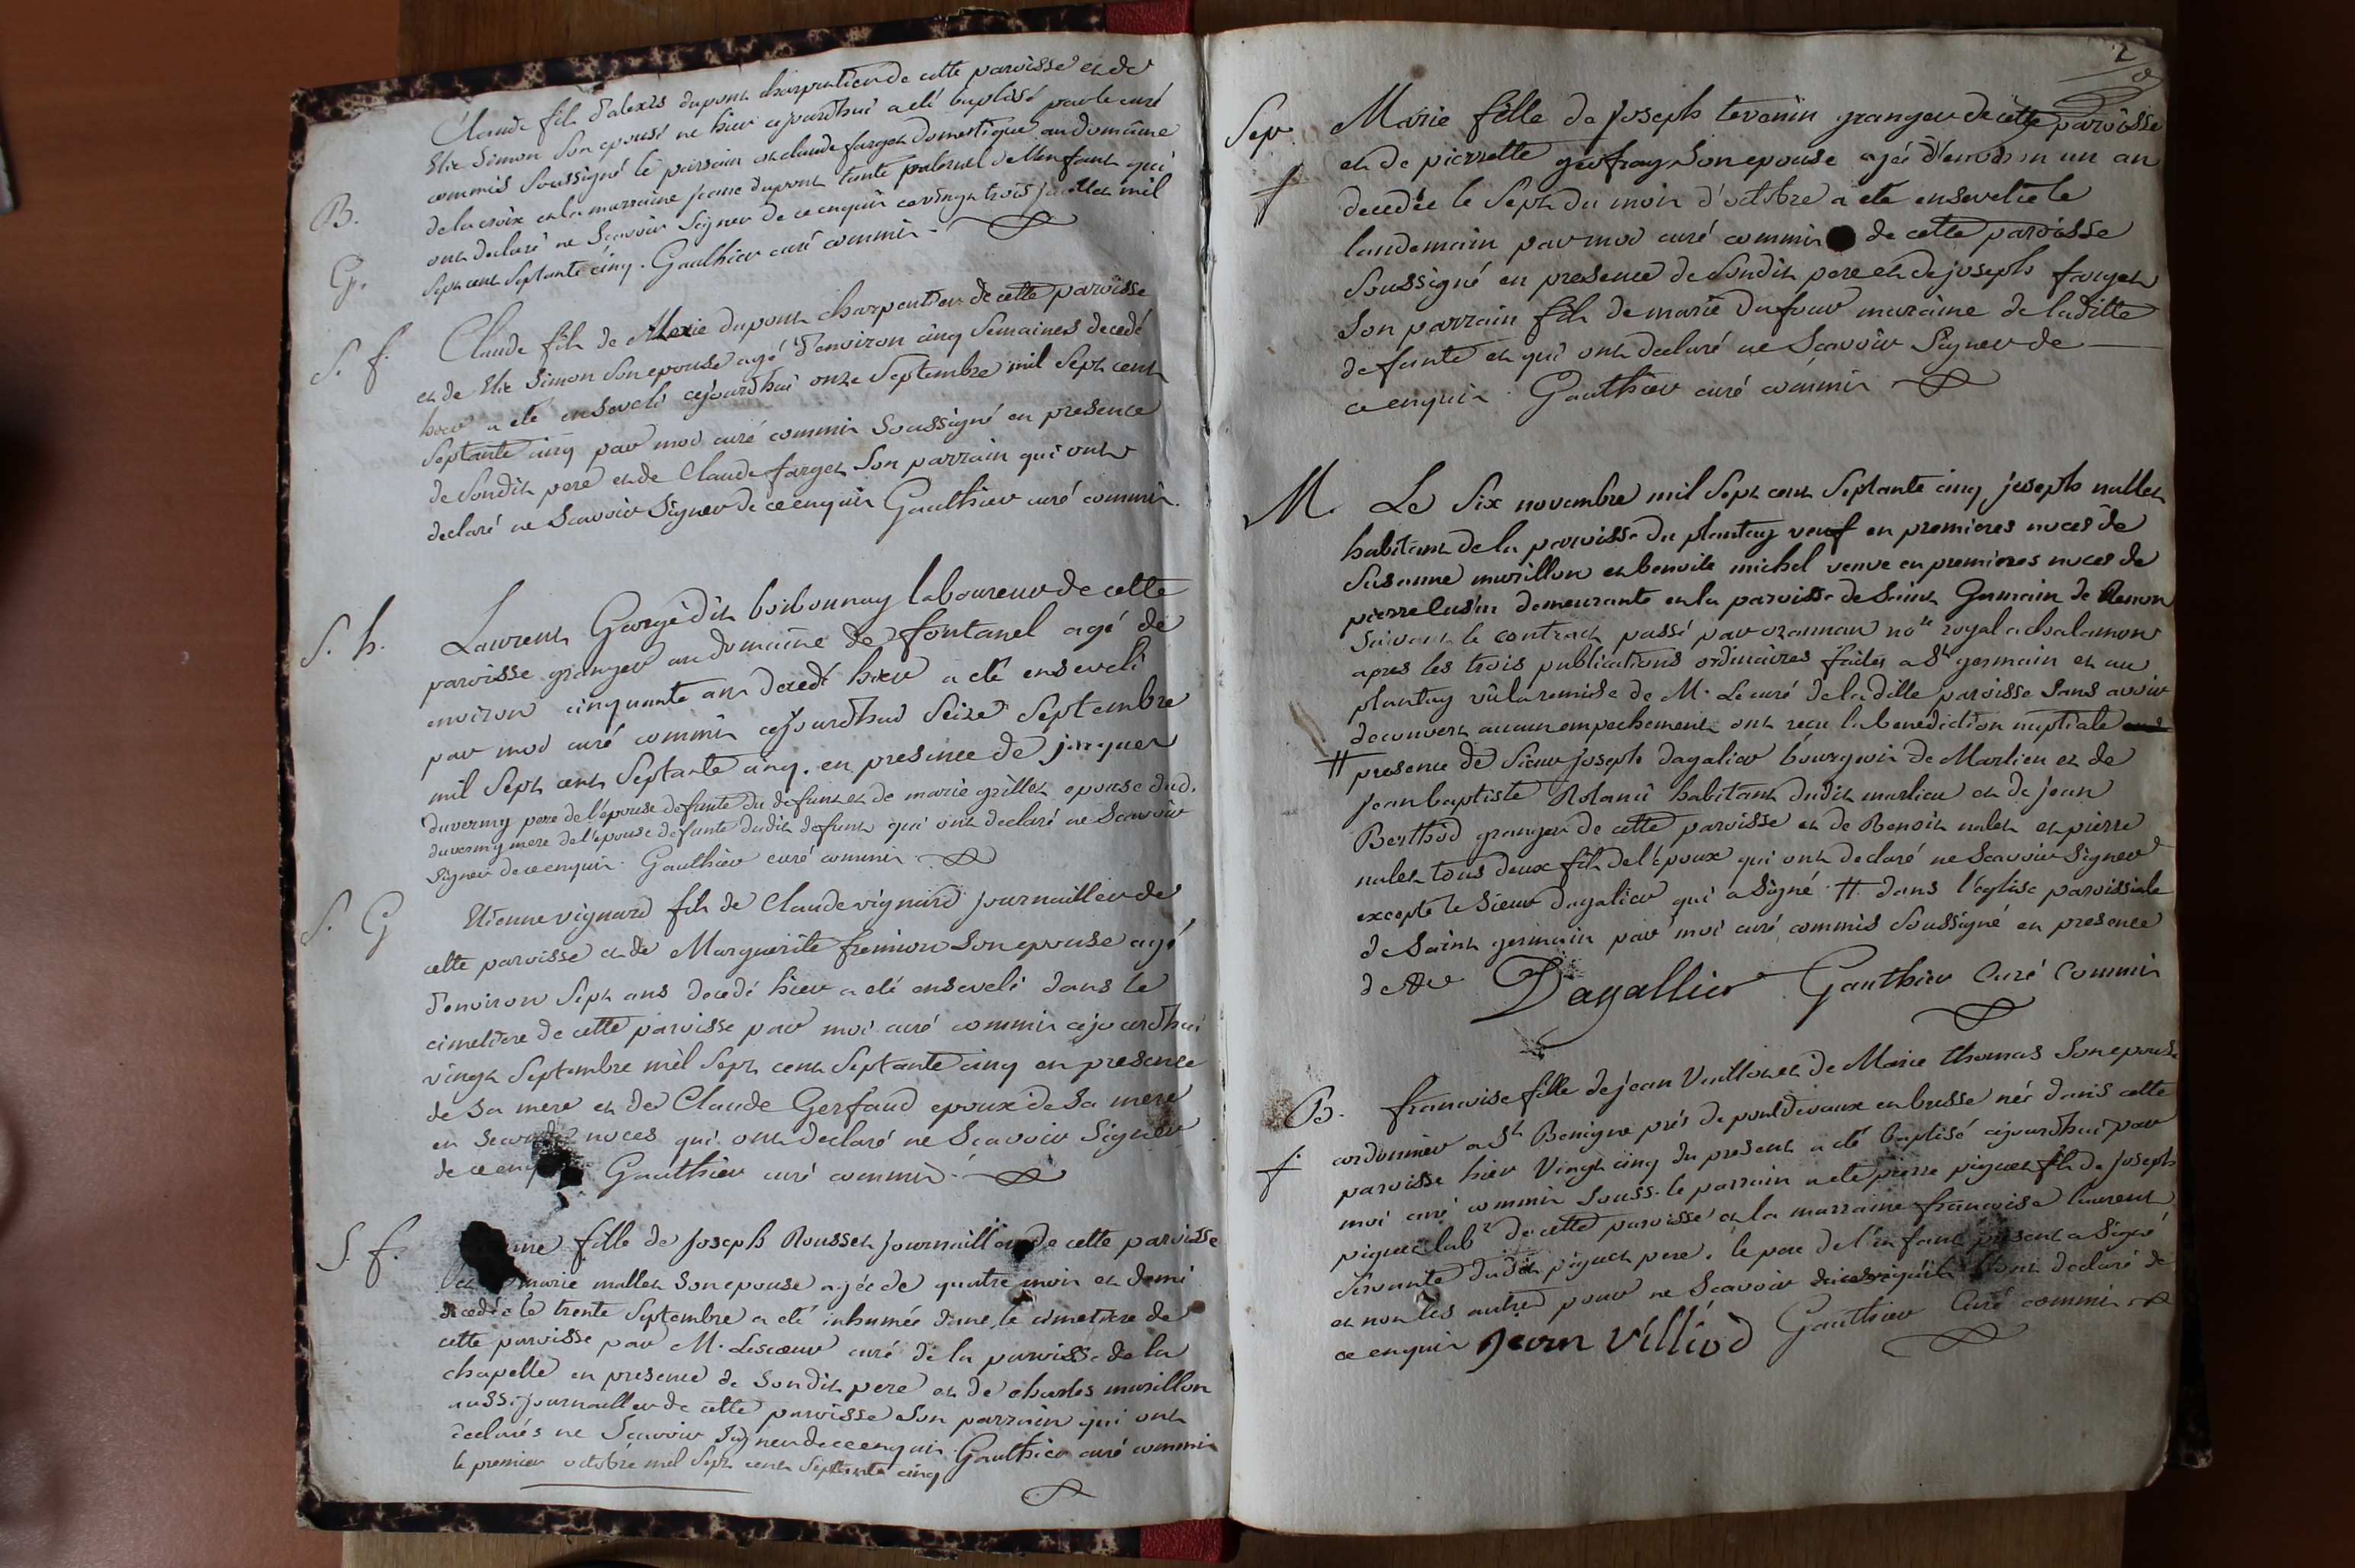 Claude fils d'alexis dupont charpentier de cette paroisse et de
Elie Simon son epouse ne hier cejourdhui a été baptisé par le curé
commis soussigné le parrain est claude farget domestique au domaine
B. de la croix et la marraine jeane dupont tante paternel de l'enfant qui
ont declaré ne Scavoir Signer de ce enquis ce vingt trois juillet mil
G. Sept cent Septante cinq. Gauthier curé commis
S. f. Claude fils de Alexie dupont charpentier de cette paroisse
et de Elie Simon Son epouse agé d'environ cinq Semaines decedé
hier a été enseveli cejourdhui onze Septembre mil Sept cent
Septante cinq par moi curé commis Soussigné en presence
de Sondit pere et de Claude farget Son parrain qui ont
declaré ne Scavoir Signer de ce enquis Gauthier curé commis.
S. h. Laurent Gorgé dit borbonnay laboureur de cette
paroisse granger au domaine de fontanel agé de
environ cinquante ans decedé hier a été enseveli
par moi curé commis cejourdhui Seize Septembre
mil Sept cent Septante cinq. en presence de jacques
duverny pere de l'épouse defunte du defunt et de marie grillet epouse dud.
duverny mere de l'epouse defunte dudit defunt qui ont declaré ne Scavoir
Signer de ce enquis. Gauthier curé commis
S. G Etienne vignard fils de Claude vignard journaillier de
cette paroisse et de Marguerite fremion Son epouse agé
d'environ Sept ans decedé hier a été enseveli dans le
cimetiere de cette paroisse par moi curé commis cejourdhui
vingt Septembre mil Sept cent Septante cinq en presence
de Sa mere et de Claude Gerfaud epoux de Sa mere
en Secondes noces qui ont declaré ne Scavoir Signer
de ce enquis Gauthier curé commis.
S. f. fille de Joseph Rousset journaillier de cette paroisse
et marie mallet Son epouse agée de quatre mois et demi
decedée le trente Septembre a été inhumée dans le cimetiere de
cette paroisse par M. Lescoeur curé de la paroisse de la
chapelle en presence de Sondit pere et de charles murillon
aussi journaillier de cette paroisse Son parrain qui ont
declarés ne Scavoir Signer de ce enquis. Gauthier curé commis
le premier octobre mil Sept cent Septante cinq
2
Sep. Marie fille de Joseph tevenin granger de cette paroisse
et de pierrette geofray Son epouse agée d'environ un an
f decedée le Sept du mois d'octobre a été ensevelie le
landemain par moi curé commis de cette paroisse
Soussigné en presence de Sondit pere et de joseph farget
Son parrain fils de marie dufour maraine de laditte
defunte et qui ont declaré ne Scavoir Signer de
ce enquis. Gauthier curé commis
M. Le Six novembre mil Sept cent Septante cinq, joseph nallet
habitant de la paroisse du plantay veuf en premieres noces de
Susanne murillon et benoite michel veuve en premieres noces de
pierre lusin demeurante en la paroisse de Saint Germain de Renon
Suivant le contract passé par noe royal a chalamon
apres les trois publications ordinaires faites a St germain et au
plantay vû la remise de M. Le curé de la ditte paroisse Sans avoir
decouvert aucun empechement ont recu la benediction nuptiale
# presence de Sieur joseph dagalier bourgeois de Marlieu et de
jean baptiste Roland habitant dudit marlieu et de jean
Berthod granger de cette paroisse et de Benoit nalet et pierre
nalet tous deux fils de l'époux qui ont declaré ne Scavoir Signer
excepté le Sieur dagalier qui a Signé. # dans l'église paroissiale
de Saint germain par moi curé commis Soussigné en presence
de Dagallier Gauthier Curé Commis
B. francoise fille de jean Vuilliot et de Marie thomas Son epouse
cordonnier a St Benigne prés de pontdevaux en bresse née dans cette
f. paroisse hier Vingt cinq du present a été baptisé cejourdhui par
moi curé commis Souss. le parrain a été pierre piguet fils de Joseph
piguet labr de cette paroisse et la marraine francoise laurent
Servante dudit piguet pere. le pere de l'enfant présent a Signé
et non les autres pour ne Scavoir declaré de
ce enquis jean Villiod Gauthier Curé commis